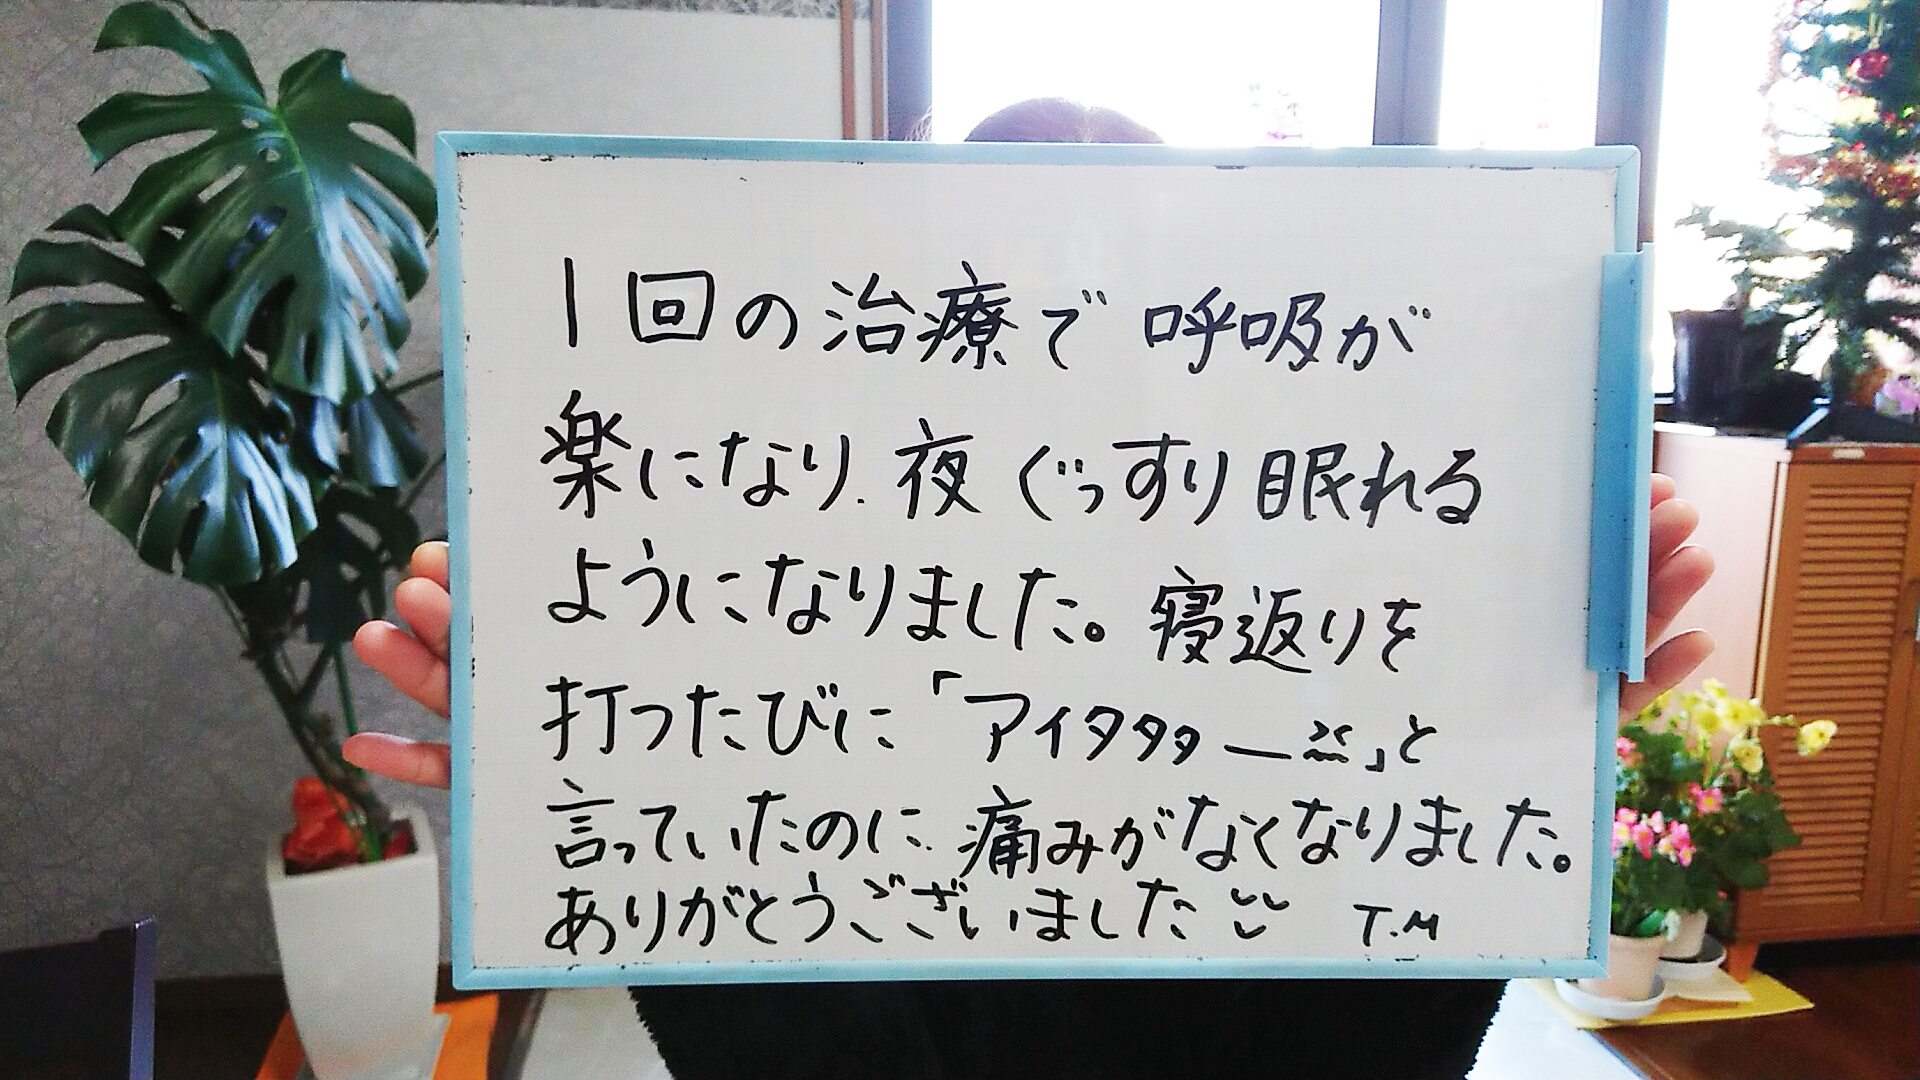 1回の治療で 呼吸が
楽になり、夜 ぐっすり 眠れる
ようになりました。寝返りを
打つたびに「アイタタタ―」と
言っていたのに、痛みがなくなりました。
ありがとうございました T.M